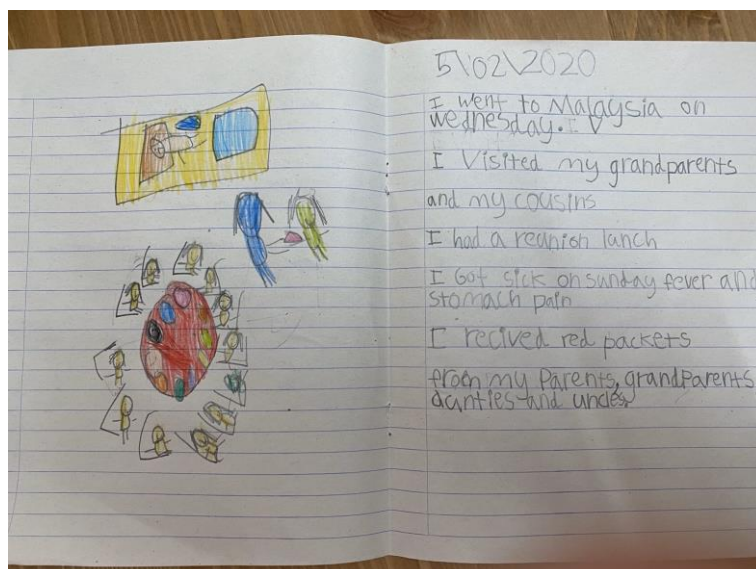 5\02\2020
I went to Malaysia on
wednesday. I V
I Visited my grandparents
and my cousins
I had a reunion lanch
I Got sick on sunday fever and
stomach pain
I recived red packets
from my Parents, grandParents
aunties and uncles